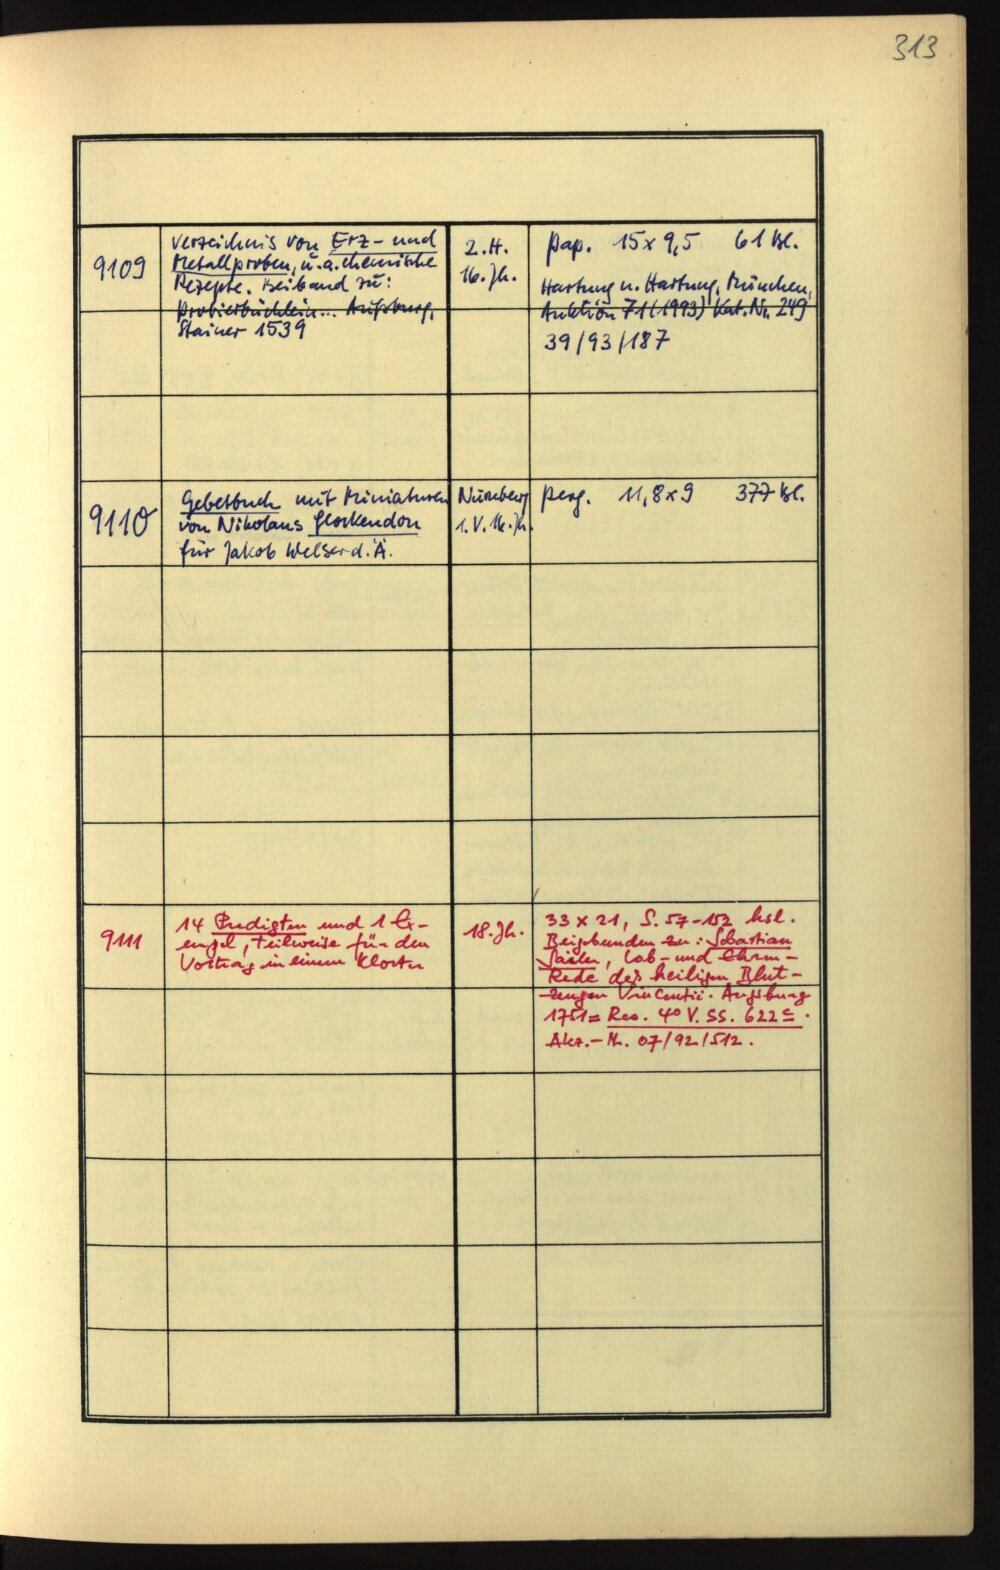 313
9109
Verzeichnis von Erz- und
Metallproben, u.a. chemische
Rezepte. Beiband zu:
Probierbüchlein... Augsburg,
Stainer 1539
2. H.
16. Jh.
Pap. 15 x 9,5 61 Bl.
Hartung u. Hartung, München,
Auktion 71 (1993) Kat. Nr. 249
39/93/187
9110
Gebetbuch mit Miniaturen
von Nikolaus Glockendon
für Jakob Welser d. Ä.
Nürnberg
1. V. 16. Jh.
Perg. 11,8 x 9 377 Bl.
9111
14 Predigten und 1 Ex-
empel, teilweise für den
Vortrag in einem Kloster
18. Jh.
33 x 21, S. 57-152 hsl.
Beigebunden zu: Sebastian
Sailer, Lob- und Ehren-
Rede des heiligen Blut-
zeugen Vincentii. Augsburg
1751 = Res. 4° V. SS. 622
Akz.-Nr. 07/92/512.